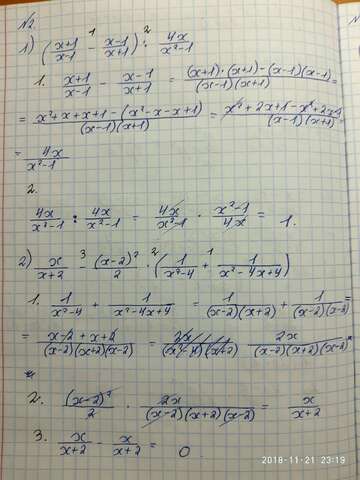 №2.
1) (x+1/x-1 - x-1/x+1) : 4x/x²-1
1. x+1/x-1 - x-1/x+1 = (x+1)·(x+1)-(x-1)(x-1)/(x-1)(x+1) =
= x²+x+x+1-(x²-x-x+1)/(x-1)(x+1) = x²+2x+1-x²+2x-1/(x-1)(x+1) =
= 4x/x²-1
2.
4x/x²-1 : 4x/x²-1 = 4x/x²-1 · x²-1/4x = 1.
2) x/x+2 - (x-2)²/2 · (1/x²-4 + 1/x²-4x+4)
1. 1/x²-4 + 1/x²-4x+4 = 1/(x-2)(x+2) + 1/(x-2)(x-2) =
= x-2+x+2/(x-2)(x+2)(x-2) = 2x/(x-2)(x+2)(x-2)
2. (x-2)²/2 · 2x/(x-2)(x+2)(x-2) = x/x+2
3. x/x+2 - x/x+2 = 0
2018-11-21 23:19